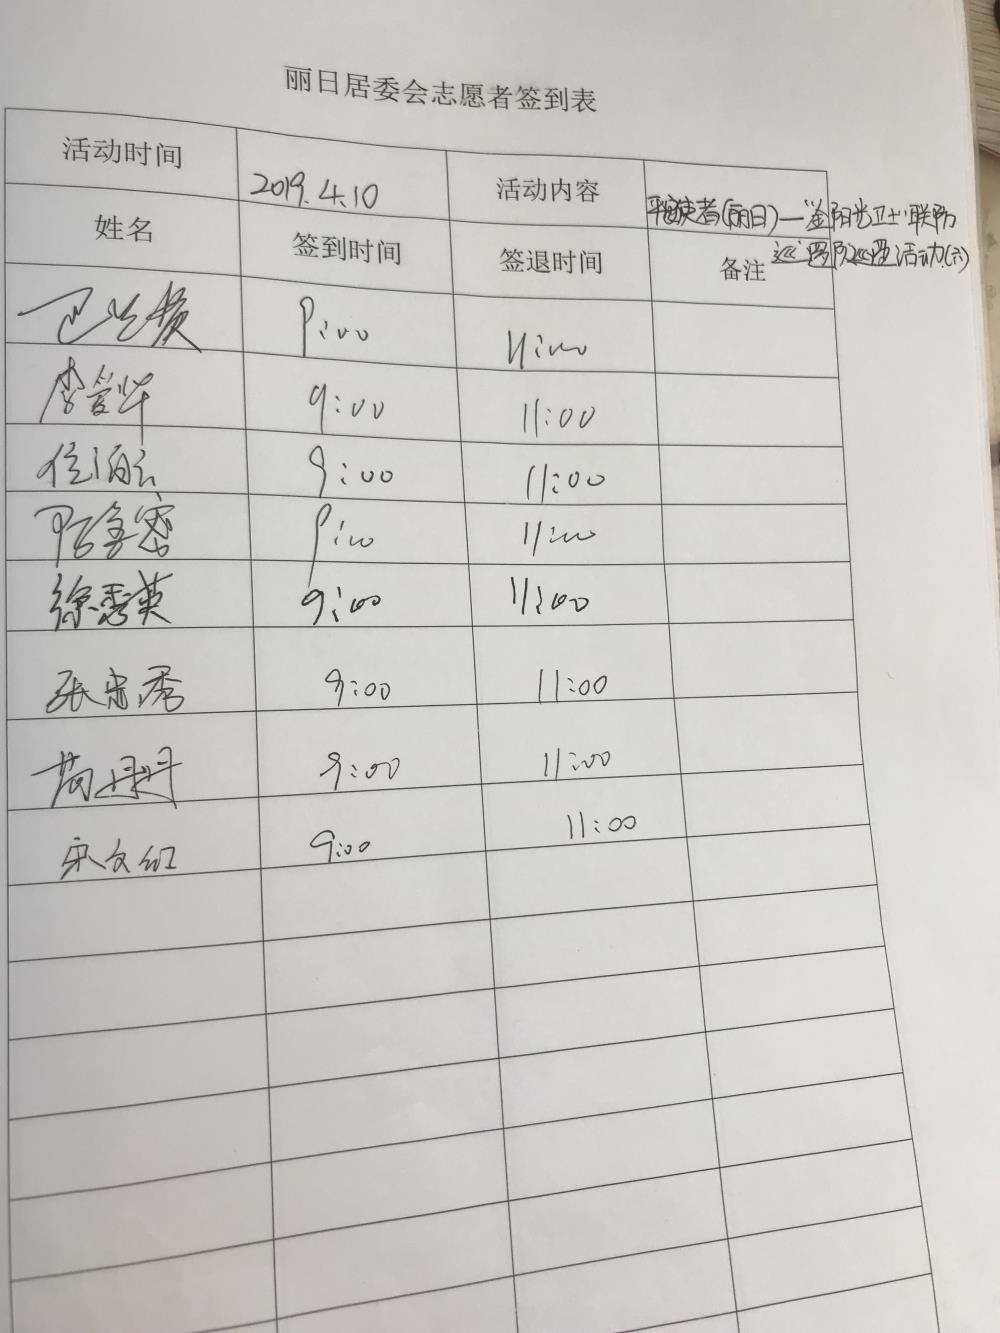 丽日居委会志愿者签到表
活动时间 2019.4.10 活动内容 平安使者(丽日)—"金阳光卫士"联防
巡逻队巡逻活动(六)
姓名 签到时间 签退时间 备注
9:00 11:00
李爱华 9:00 11:00
9:00 11:00
9:00 11:00
徐秀英 9:00 11:00
张忠秀 9:00 11:00
9:00 11:00
宋文红 9:00 11:00